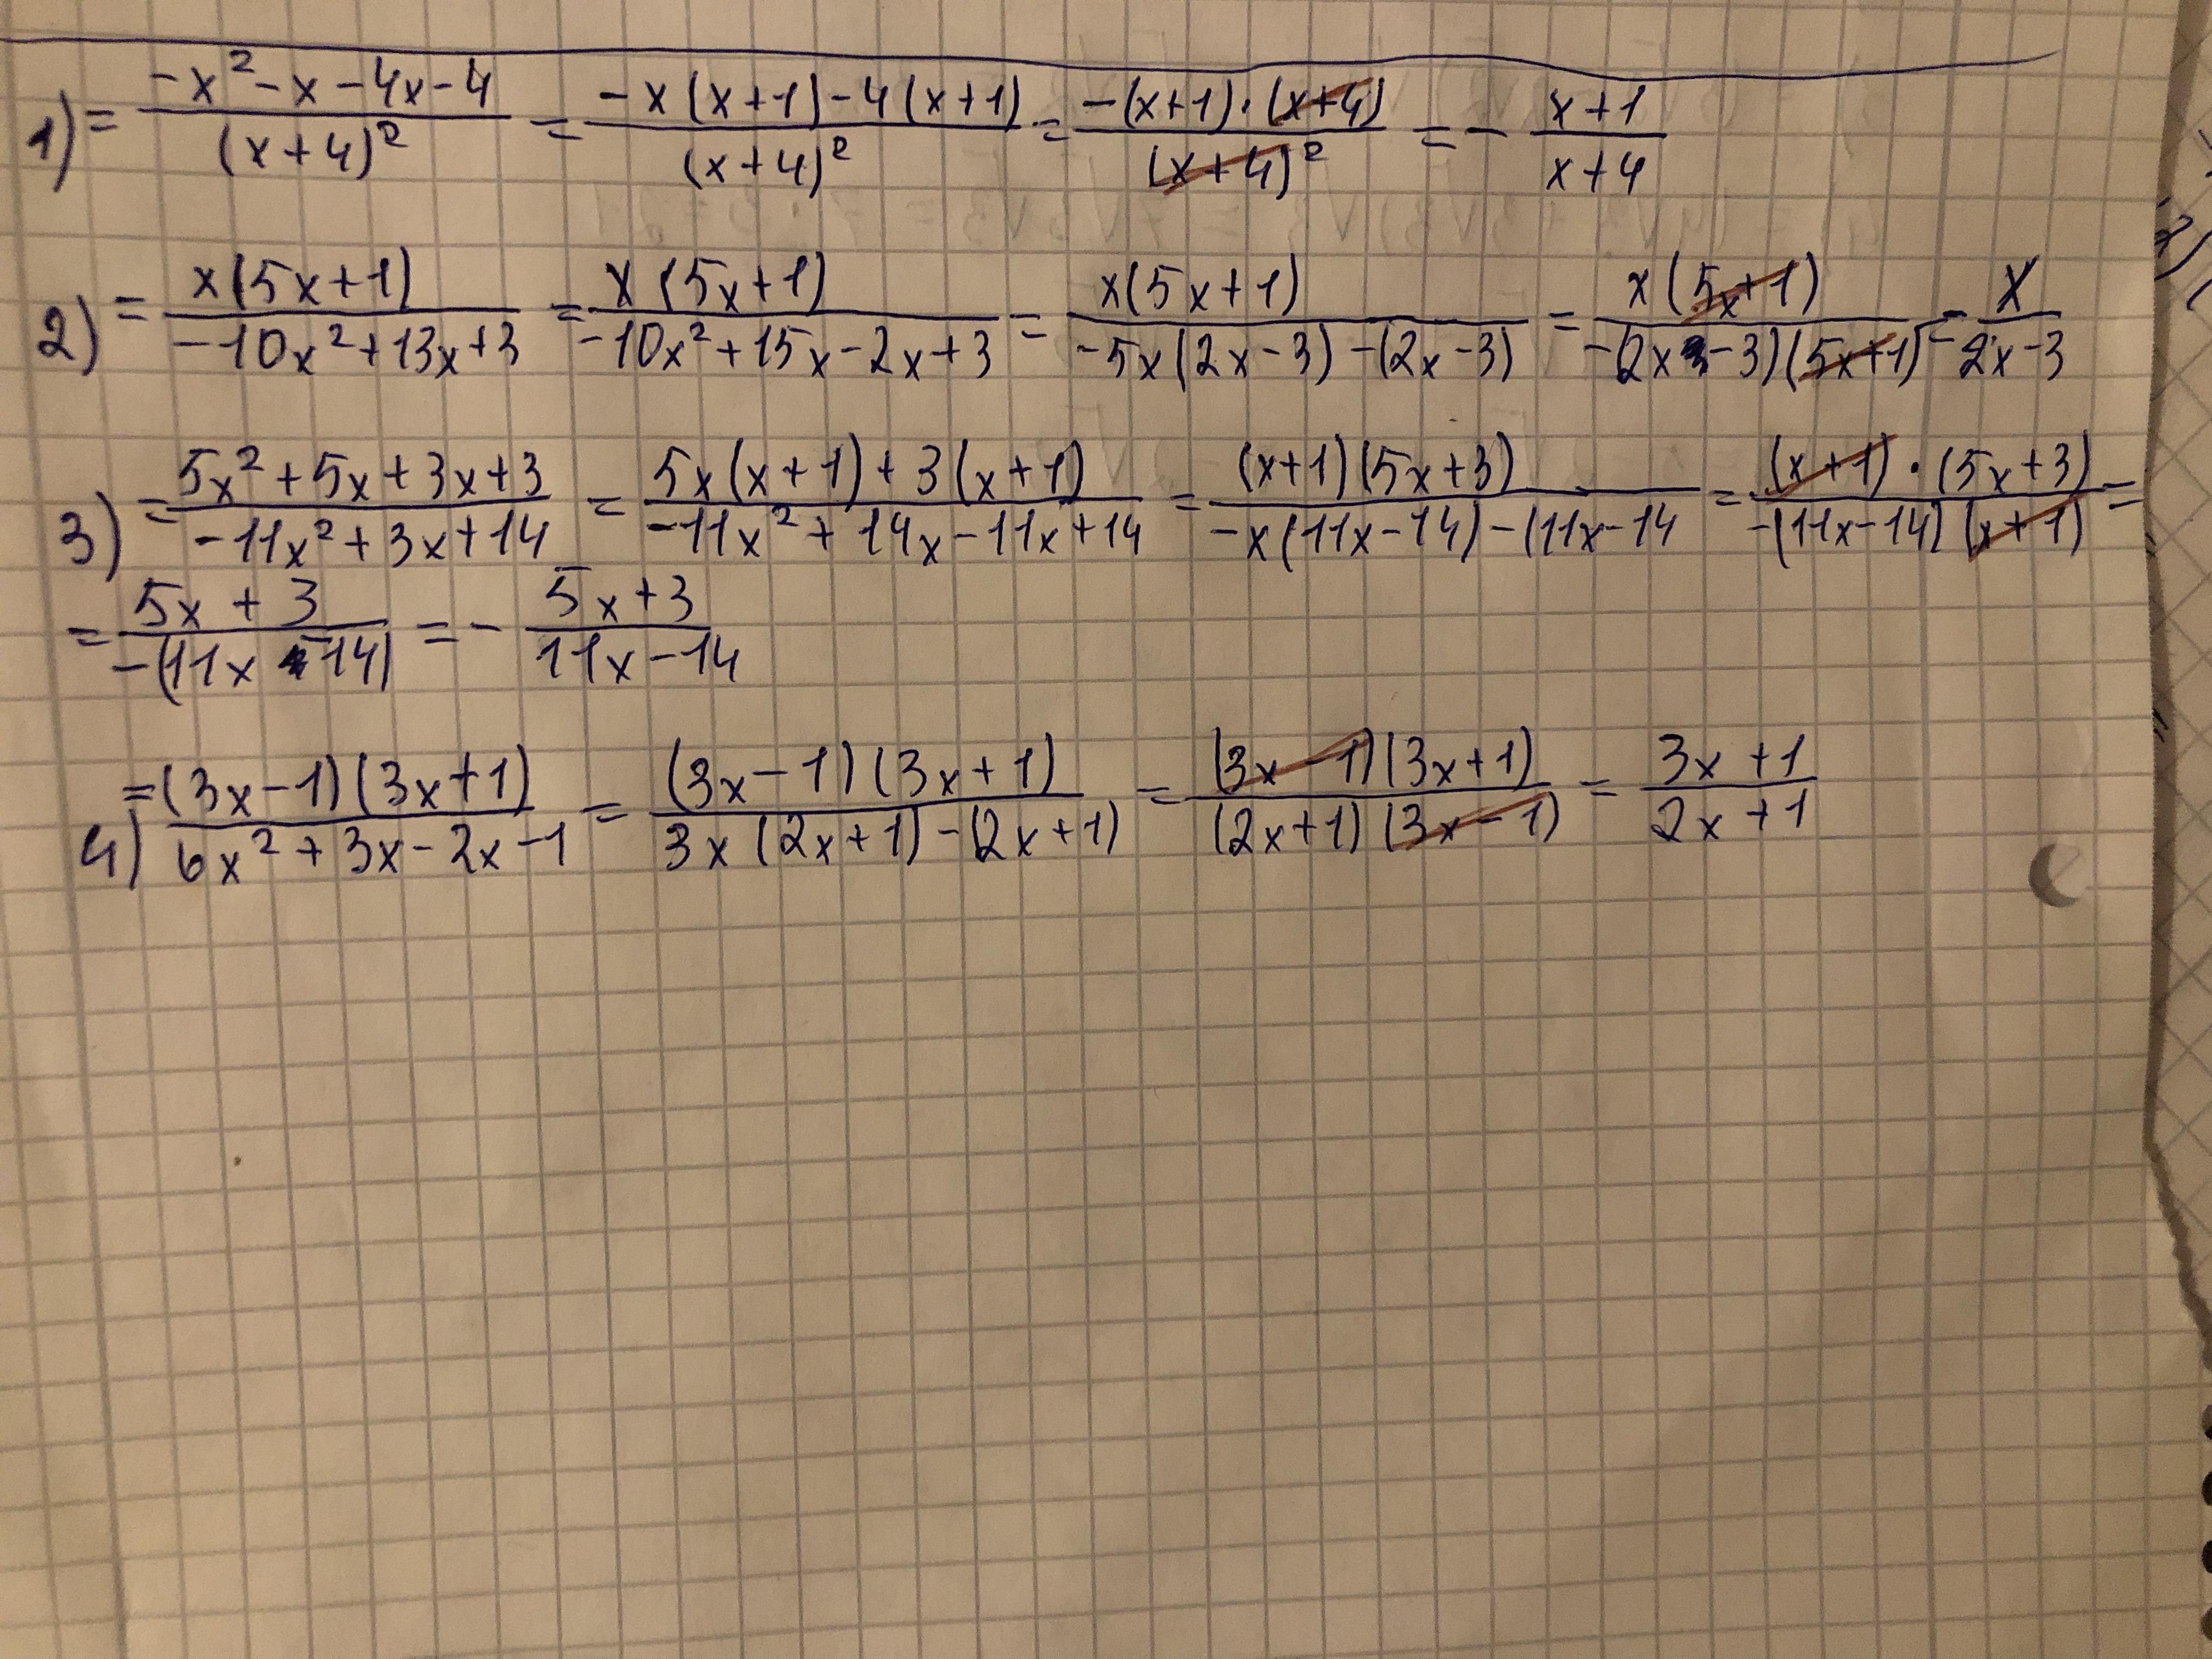 1) = (-x² - x - 4x - 4)/((x+4)²) = (-x(x+1) - 4(x+1))/((x+4)²) = (-(x+1)·(x+4))/((x+4)²) = - (x+1)/(x+4)
2) = (x(5x+1))/(-10x²+13x+3) = (x(5x+1))/(-10x²+15x-2x+3) = (x(5x+1))/(-5x(2x-3)-(2x-3)) = (x(5x+1))/(-(2x-3)(5x+1)) = - x/(2x-3)
3) = (5x²+5x+3x+3)/(-11x²+3x+14) = (5x(x+1)+3(x+1))/(-11x²+14x-11x+14) = ((x+1)(5x+3))/(-x(11x-14)-(11x-14) = ((x+1)·(5x+3))/(-(11x-14)(x+1)) =
= (5x+3)/(-(11x-14)) = - (5x+3)/(11x-14)
4) = ((3x-1)(3x+1))/(6x²+3x-2x-1) = ((3x-1)(3x+1))/(3x(2x+1)-(2x+1)) = ((3x-1)(3x+1))/((2x+1)(3x-1)) = (3x+1)/(2x+1)